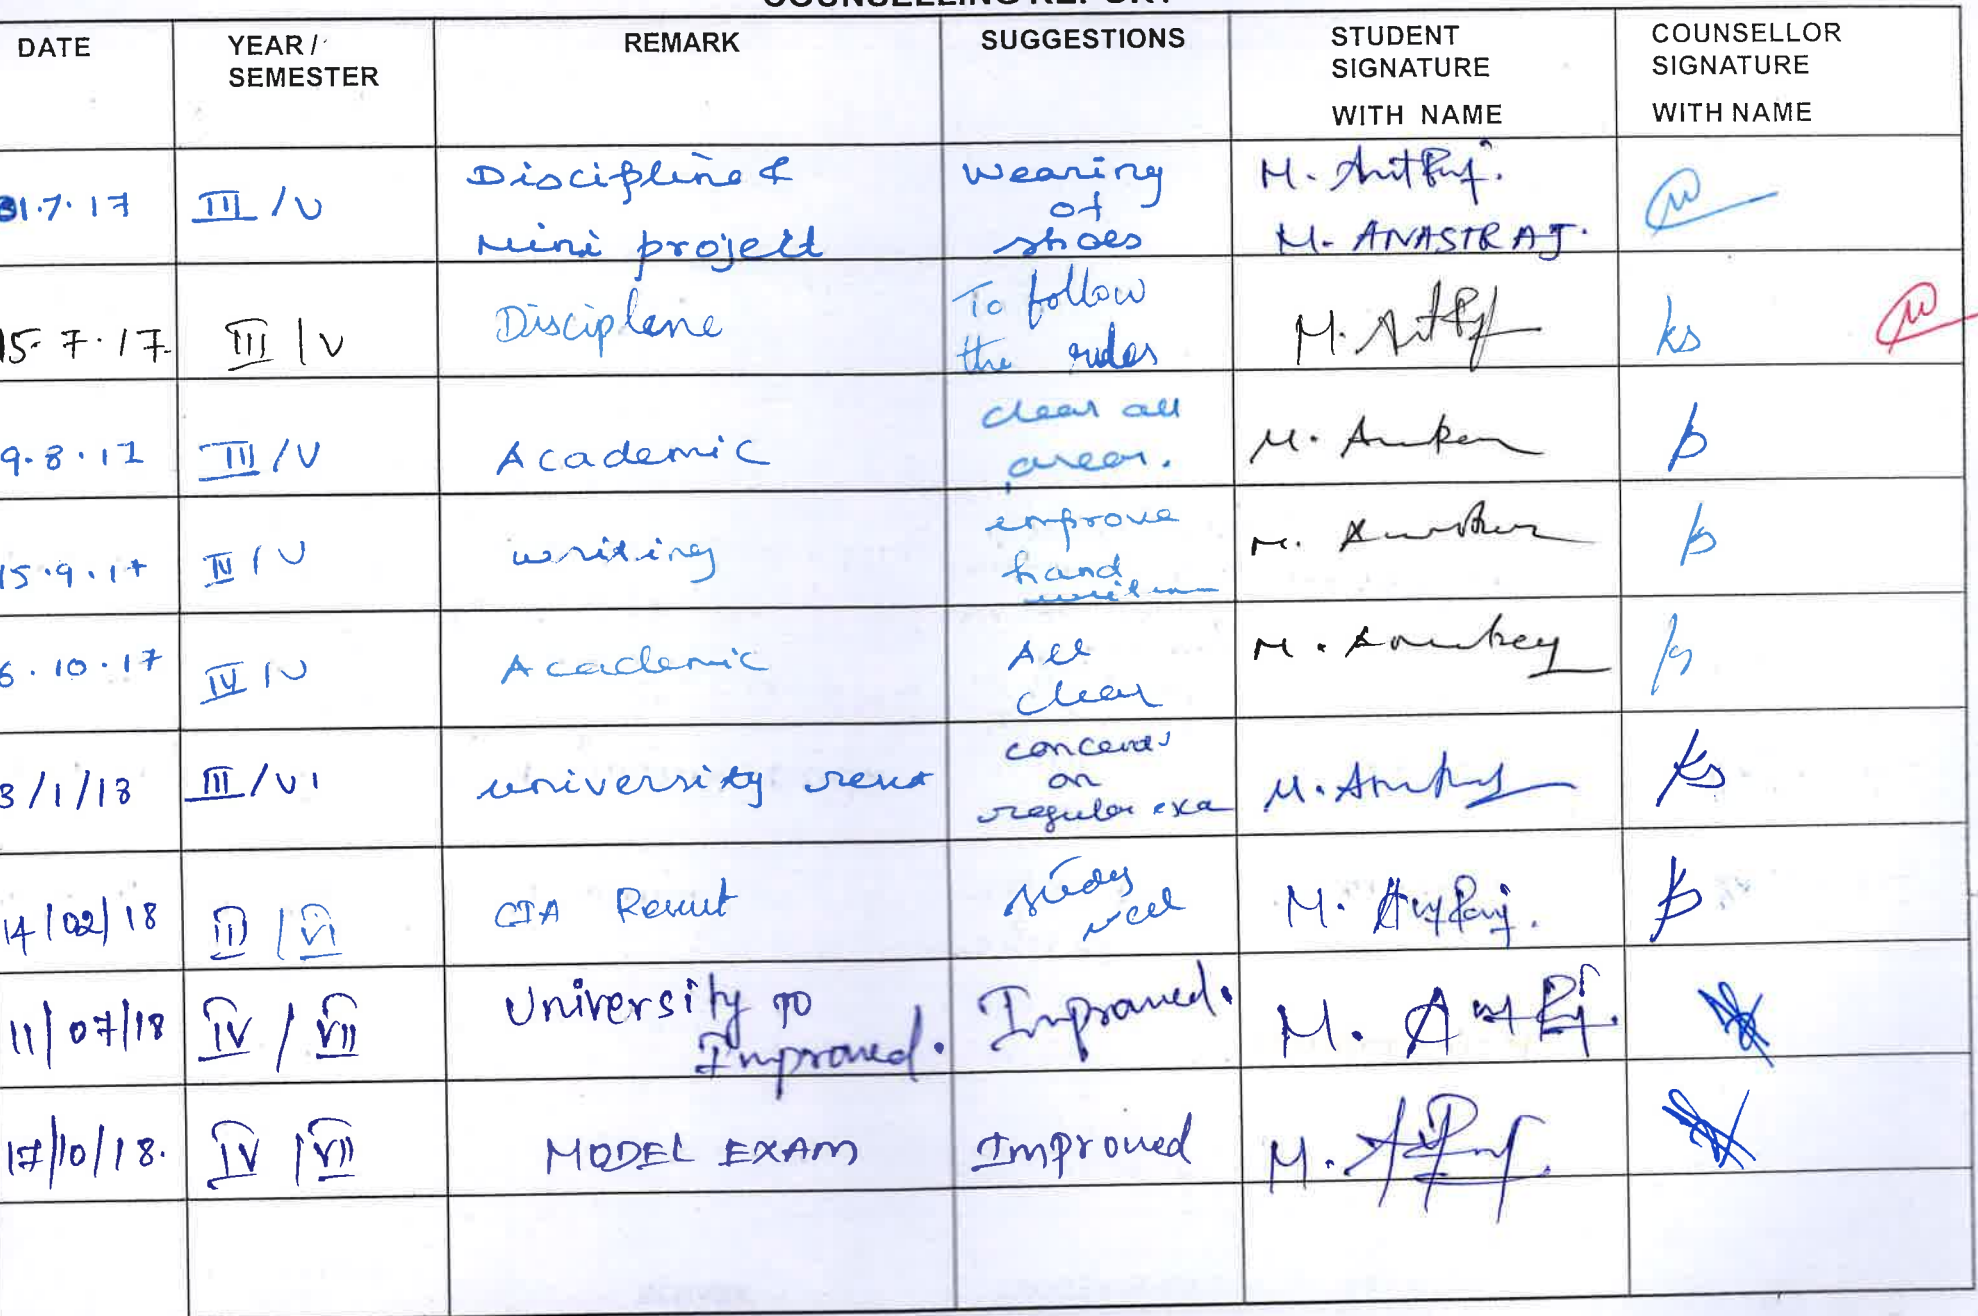 COUNSELLING REPORT
DATE
YEAR /
SEMESTER
REMARK
SUGGESTIONS
STUDENT
SIGNATURE
WITH NAME
COUNSELLOR
SIGNATURE
WITH NAME
1.7.17
III / V
Discipline &
Mini project
Wearing
of
shoes
M.
M. ANASTRAJ.
15.7.17
III / V
Disciplene
To follow
the rules
M.
ks
9.8.17
III / V
Academic
clear all
arear.
M.
15.9.17
IV / V
writing
improve
hand
M.
6.10.17
IV / V
Academic
All
clear
M.
3/1/18
III / VI
university
on
regular exa
M.
ks
14/02/18
III / VI
CIA Result
study
well
M.
11/07/18
IV / VII
University TO
Improved.
Improved.
M.
17/10/18.
IV / VII
MODEL EXAM
Improved
M.